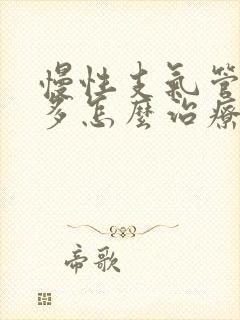 慢性支氣管
多怎麼治療
帝歌